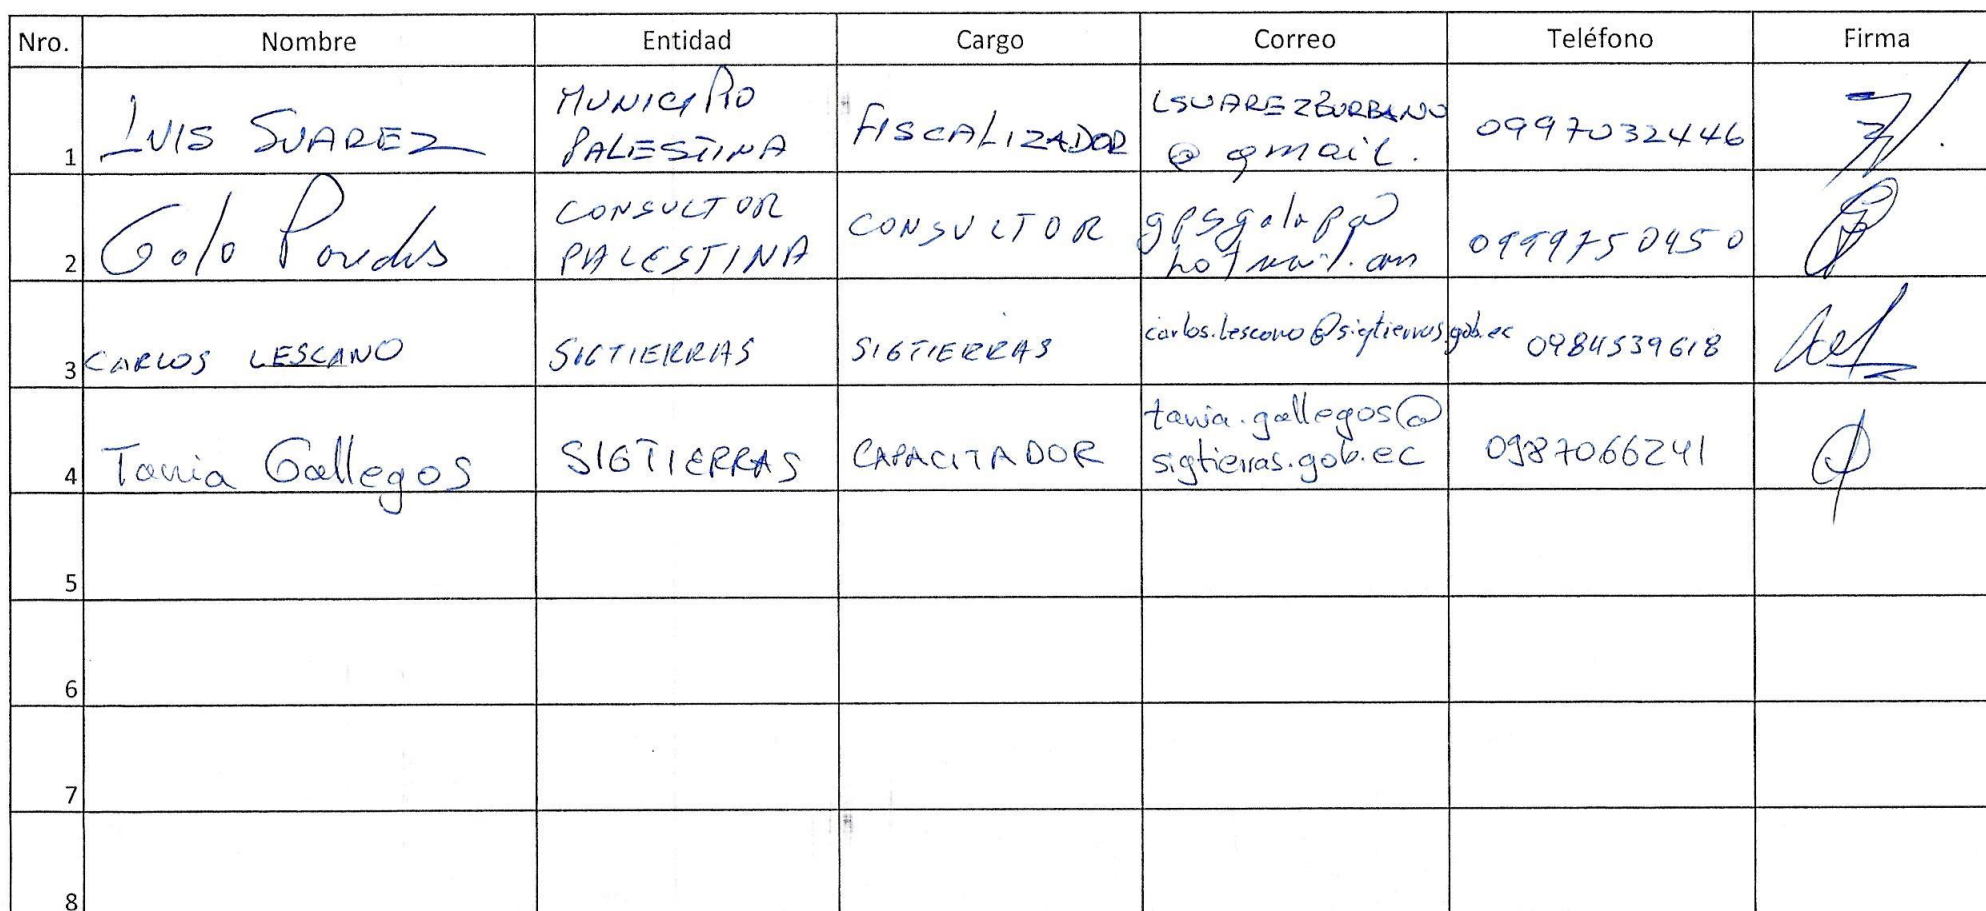 Nro. Nombre Entidad Cargo Correo Teléfono Firma
1 LUIS SUAREZ MUNICIPIO PALESTINA FISCALIZADOR LSUAREZBURBANO @ gmail. 0997032446
2 Galo Paredes CONSULTOR PALESTINA CONSULTOR gpsgalopa@ hotmail.com 0999750450
3 CARLOS LESCANO SIGTIERRAS SIGTIERRAS carlos.lescano@sigtierras.gob.ec 0984539618
4 Tania Gallegos SIGTIERRAS CAPACITADOR tania.gallegos@ sigtierras.gob.ec 0987066241
5
6
7
8